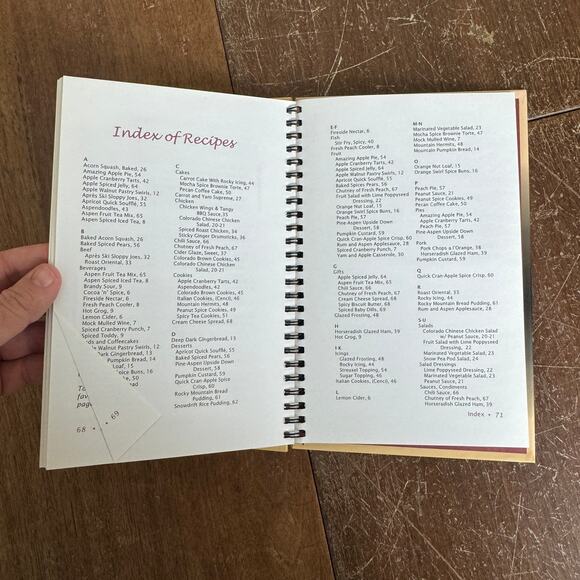 Index of Recipes
A
Acorn Squash, Baked, 26
Amazing Apple Pie, 54
Apple Cranberry Tarts, 42
Apple Spiced Jelly, 64
Apple Walnut Pastry Swirls, 12
Apricot Quick Soufflé, 55
Après Ski Sloppy Joes, 32
Aspendoodles, 43
Aspen Fruit Tea Mix, 65
Aspen Spiced Iced Tea, 8
B
Baked Acorn Squash, 26
Baked Spiced Pears, 56
Beef
Après Ski Sloppy Joes, 32
Roast Oriental, 33
Beverages
Aspen Fruit Tea Mix, 65
Aspen Spiced Iced Tea, 8
Brandy Sour, 9
Cocoa 'n' Spice, 6
Fireside Nectar, 6
Fresh Peach Cooler, 8
Hot Grog, 9
Lemon Cider, 6
Mock Mulled Wine, 7
Spiced Cranberry Punch, 7
Spiced Toddy, 9
and Coffeecakes
Walnut Pastry Swirls, 12
Dark Gingerbread, 13
Pumpkin Bread, 14
Loaf, 15
Spice Buns, 16
Cake, 50
read
68 •
• 69
C
Cakes
Carrot Cake With Rocky Icing, 44
Mocha Spice Brownie Torte, 47
Pecan Coffee Cake, 50
Carrot and Yam Supreme, 27
Chicken
Chicken Wings & Tangy
BBQ Sauce, 35
Colorado Chinese Chicken
Salad, 20-21
Spiced Roast Chicken, 34
Sticky Ginger Drumsticks, 36
Chili Sauce, 66
Chutney of Fresh Peach, 67
Cider Glaze, Sweet, 37
Cocoa 'n' Spice, 6
Colorado Brown Cookies, 45
Colorado Chinese Chicken
Salad, 20-21
Cookies
Apple Cranberry Tarts, 42
Aspendoodles, 43
Colorado Brown Cookies, 45
Italian Cookies, (Cenci), 46
Mountain Hermits, 48
Peanut Spice Cookies, 49
Spicy Tea Cookies, 51
Cream Cheese Spread, 68
D
Deep Dark Gingerbread, 13
Desserts
Apricot Quick Soufflé, 55
Baked Spiced Pears, 56
Pine-Aspen Upside Down
Dessert, 58
Pumpkin Custard, 59
Quick Cran-Apple Spice
Crisp, 60
Rocky Mountain Bread
Pudding, 61
Snowdrift Rice Pudding, 62
E-F
Fireside Nectar, 6
Fish
Stir Fry, Spicy, 40
Fresh Peach Cooler, 8
Fruit
Amazing Apple Pie, 54
Apple Cranberry Tarts, 42
Apple Spiced Jelly, 64
Apple Walnut Pastry Swirls, 12
Apricot Quick Soufflé, 55
Baked Spices Pears, 56
Chutney of Fresh Peach, 67
Fruit Salad with Lime Poppyseed
Dressing, 22
Orange Nut Loaf, 15
Orange Swirl Spice Buns, 16
Peach Pie, 57
Pine-Aspen Upside Down
Dessert, 58
Pumpkin Custard, 59
Quick Cran-Apple Spice Crisp, 60
Rum and Aspen Applesauce, 28
Spiced Cranberry Punch, 7
Yam and Apple Casserole, 30
G
Gifts
Apple Spiced Jelly, 64
Aspen Fruit Tea Mix, 65
Chili Sauce, 66
Chutney of Fresh Peach, 67
Cream Cheese Spread, 68
Spicy Biscuit Butter, 68
Spiced Baby Dills, 69
Glazed Frosting, 48
H
Horseradish Glazed Ham, 39
Hot Grog, 9
I-K
Icings
Glazed Frosting, 48
Rocky Icing, 44
Streusel Topping, 54
Sugar Topping, 46
Italian Cookies, (Cenci), 46
L
Lemon Cider, 6
M-N
Marinated Vegetable Salad, 23
Mocha Spice Brownie Torte, 47
Mock Mulled Wine, 7
Mountain Hermits, 48
Mountain Pumpkin Bread, 14
O
Orange Nut Loaf, 15
Orange Swirl Spice Buns, 16
P
Peach Pie, 57
Peanut Sauce, 21
Peanut Spice Cookies, 49
Pecan Coffee Cake, 50
Pies
Amazing Apple Pie, 54
Apple Cranberry Tarts, 42
Peach Pie, 57
Pine-Aspen Upside Down
Dessert, 58
Pork
Pork Chops a l'Orange, 38
Horseradish Glazed Ham, 39
Pumpkin Custard, 59
Q
Quick Cran-Apple Spice Crisp, 60
R
Roast Oriental, 33
Rocky Icing, 44
Rocky Mountain Bread Pudding, 61
Rum and Aspen Applesauce, 28
S-U
Salads
Colorado Chinese Chicken Salad
w/ Peanut Sauce, 20-21
Fruit Salad with Lime Poppyseed
Dressing, 22
Marinated Vegetable Salad, 23
Snow Pea Pod Salad, 24
Salad Dressings
Lime Poppyseed Dressing, 22
Marinated Vegetable Salad, 23
Peanut Sauce, 21
Sauces, Condiments
Chili Sauce, 66
Chutney of Fresh Peach, 67
Horseradish Glazed Ham, 39
Index • 71